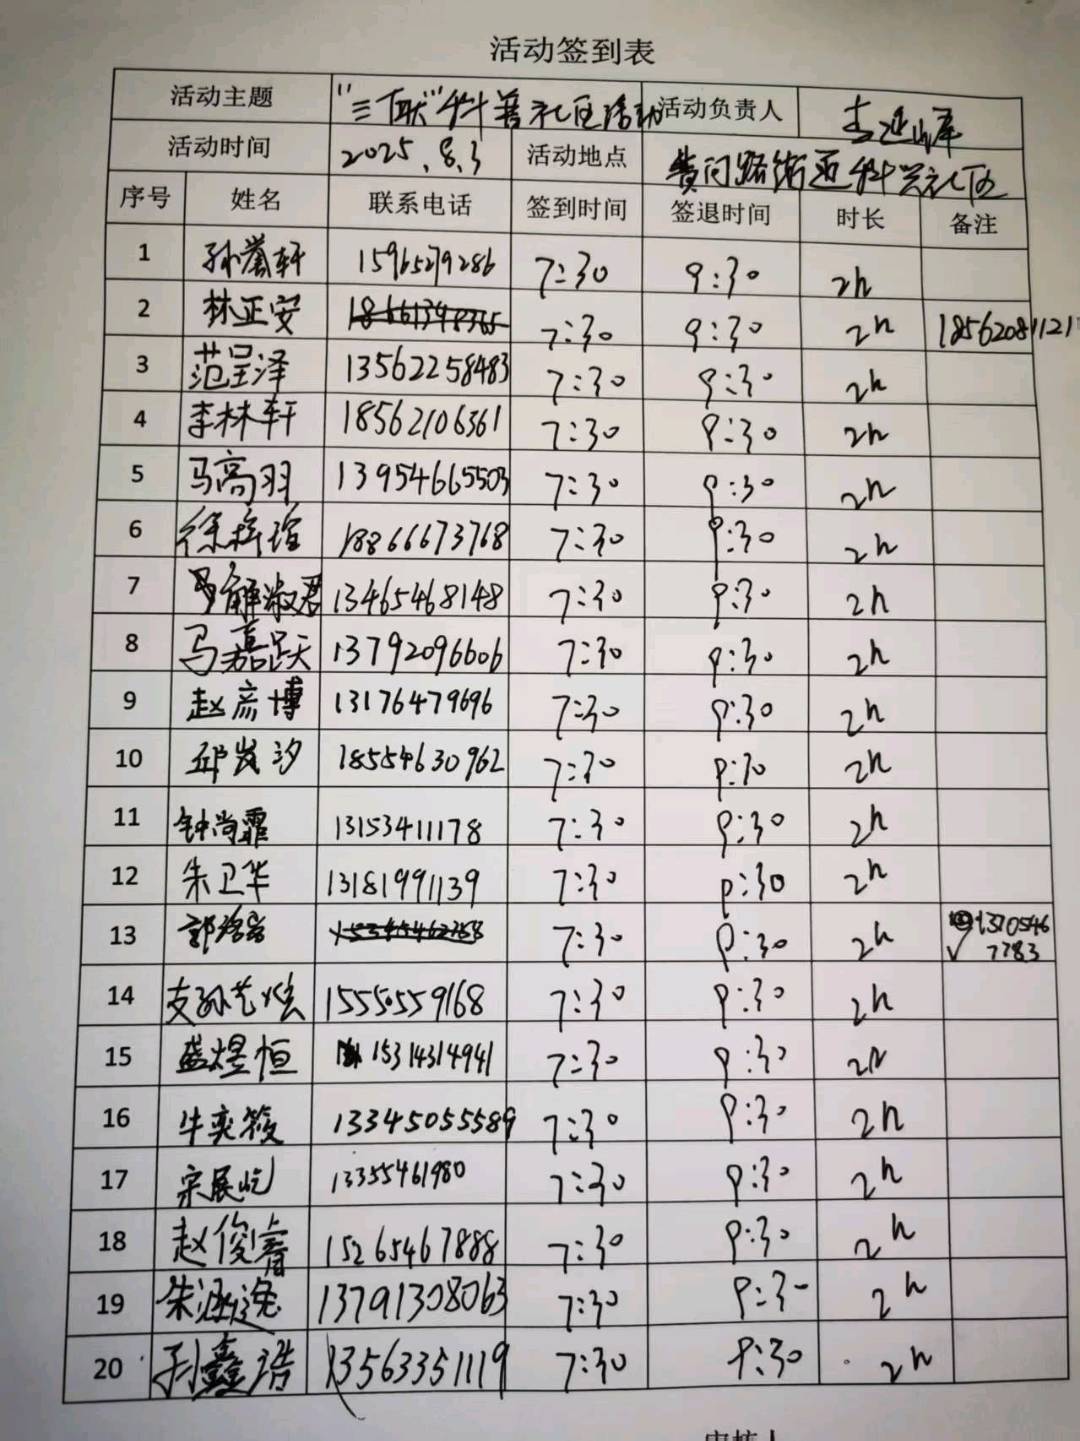 活动签到表
活动主题 "三下联"科普社区活动 活动负责人
活动时间 2025.8.3 活动地点 黄河路街道科兴社区
序号 姓名 联系电话 签到时间 签退时间 时长 备注
1 孙誉轩 15965279286 7:30 9:30 2h
2 林正安 7:30 9:30 2h 18562081121
3 范呈泽 13562258483 7:30 9:30 2h
4 李林轩 18562106361 7:30 9:30 2h
5 马高羽 13954665503 7:30 9:30 2h
6 徐梓瑄 18866673768 7:30 9:30 2h
7 解淑君 13465468148 7:30 9:30 2h
8 马嘉跃 13792096606 7:30 9:30 2h
9 赵彦博 13176479696 7:30 9:30 2h
10 邱岚汐 18554630962 7:30 9:30 2h
11 钟尚霏 13153411178 7:30 9:30 2h
12 朱卫华 13181991139 7:30 9:30 2h
13 7:30 9:30 2h 1370546
7783
14 支孙艺炫 15550559168 7:30 9:30 2h
15 盛煜恒 15314314941 7:30 9:30 2h
16 牛奕筱 13345055589 7:30 9:30 2h
17 宗展屹 13355461980 7:30 9:30 2h
18 赵俊睿 15265467888 7:30 9:30 2h
19 朱涵逸 13791308063 7:30 9:30 2h
20 孙鑫浩 13563351119 7:30 9:30 2h